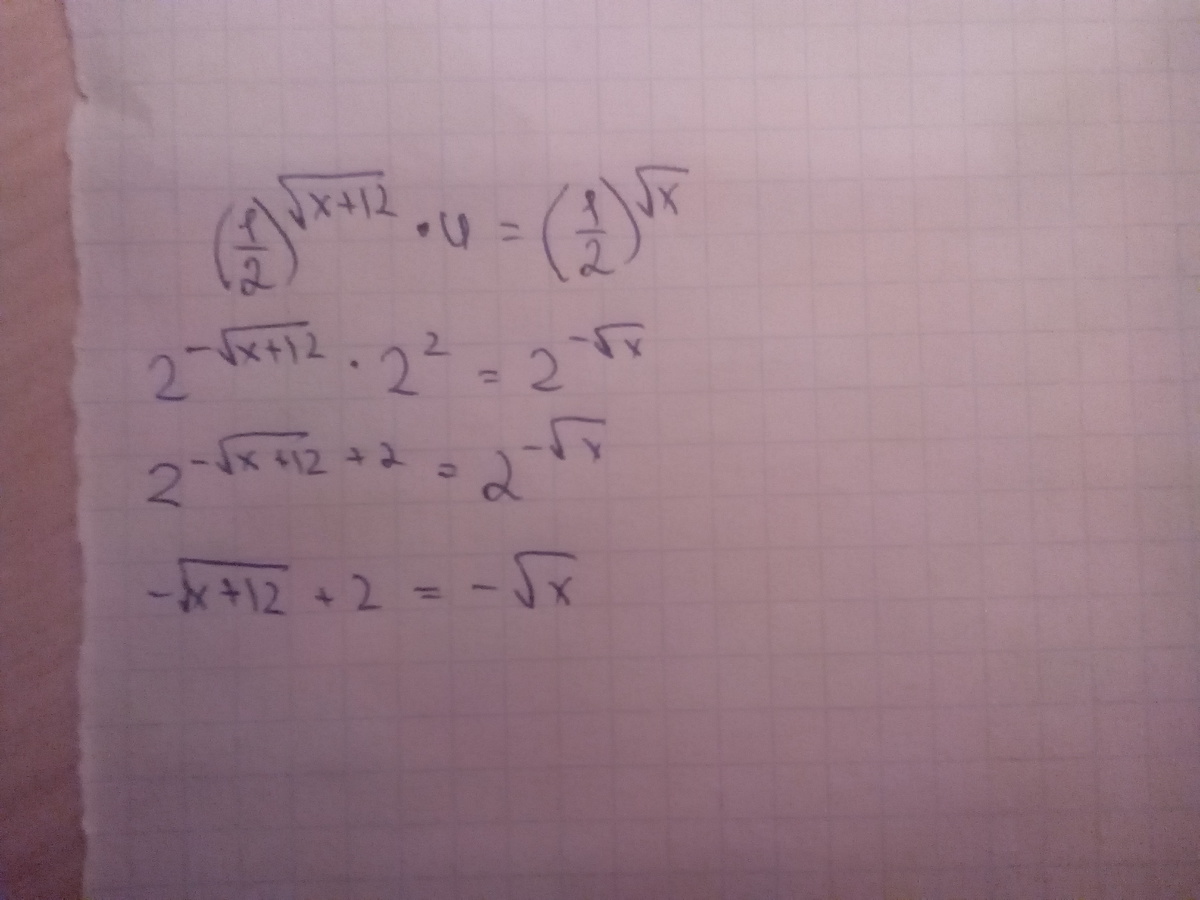 (1/2)^√(x+12) · 4 = (1/2)^√x
2^(-√(x+12)) · 2^2 = 2^(-√x)
2^(-√(x+12) + 2) = 2^(-√x)
-√(x+12) + 2 = -√x